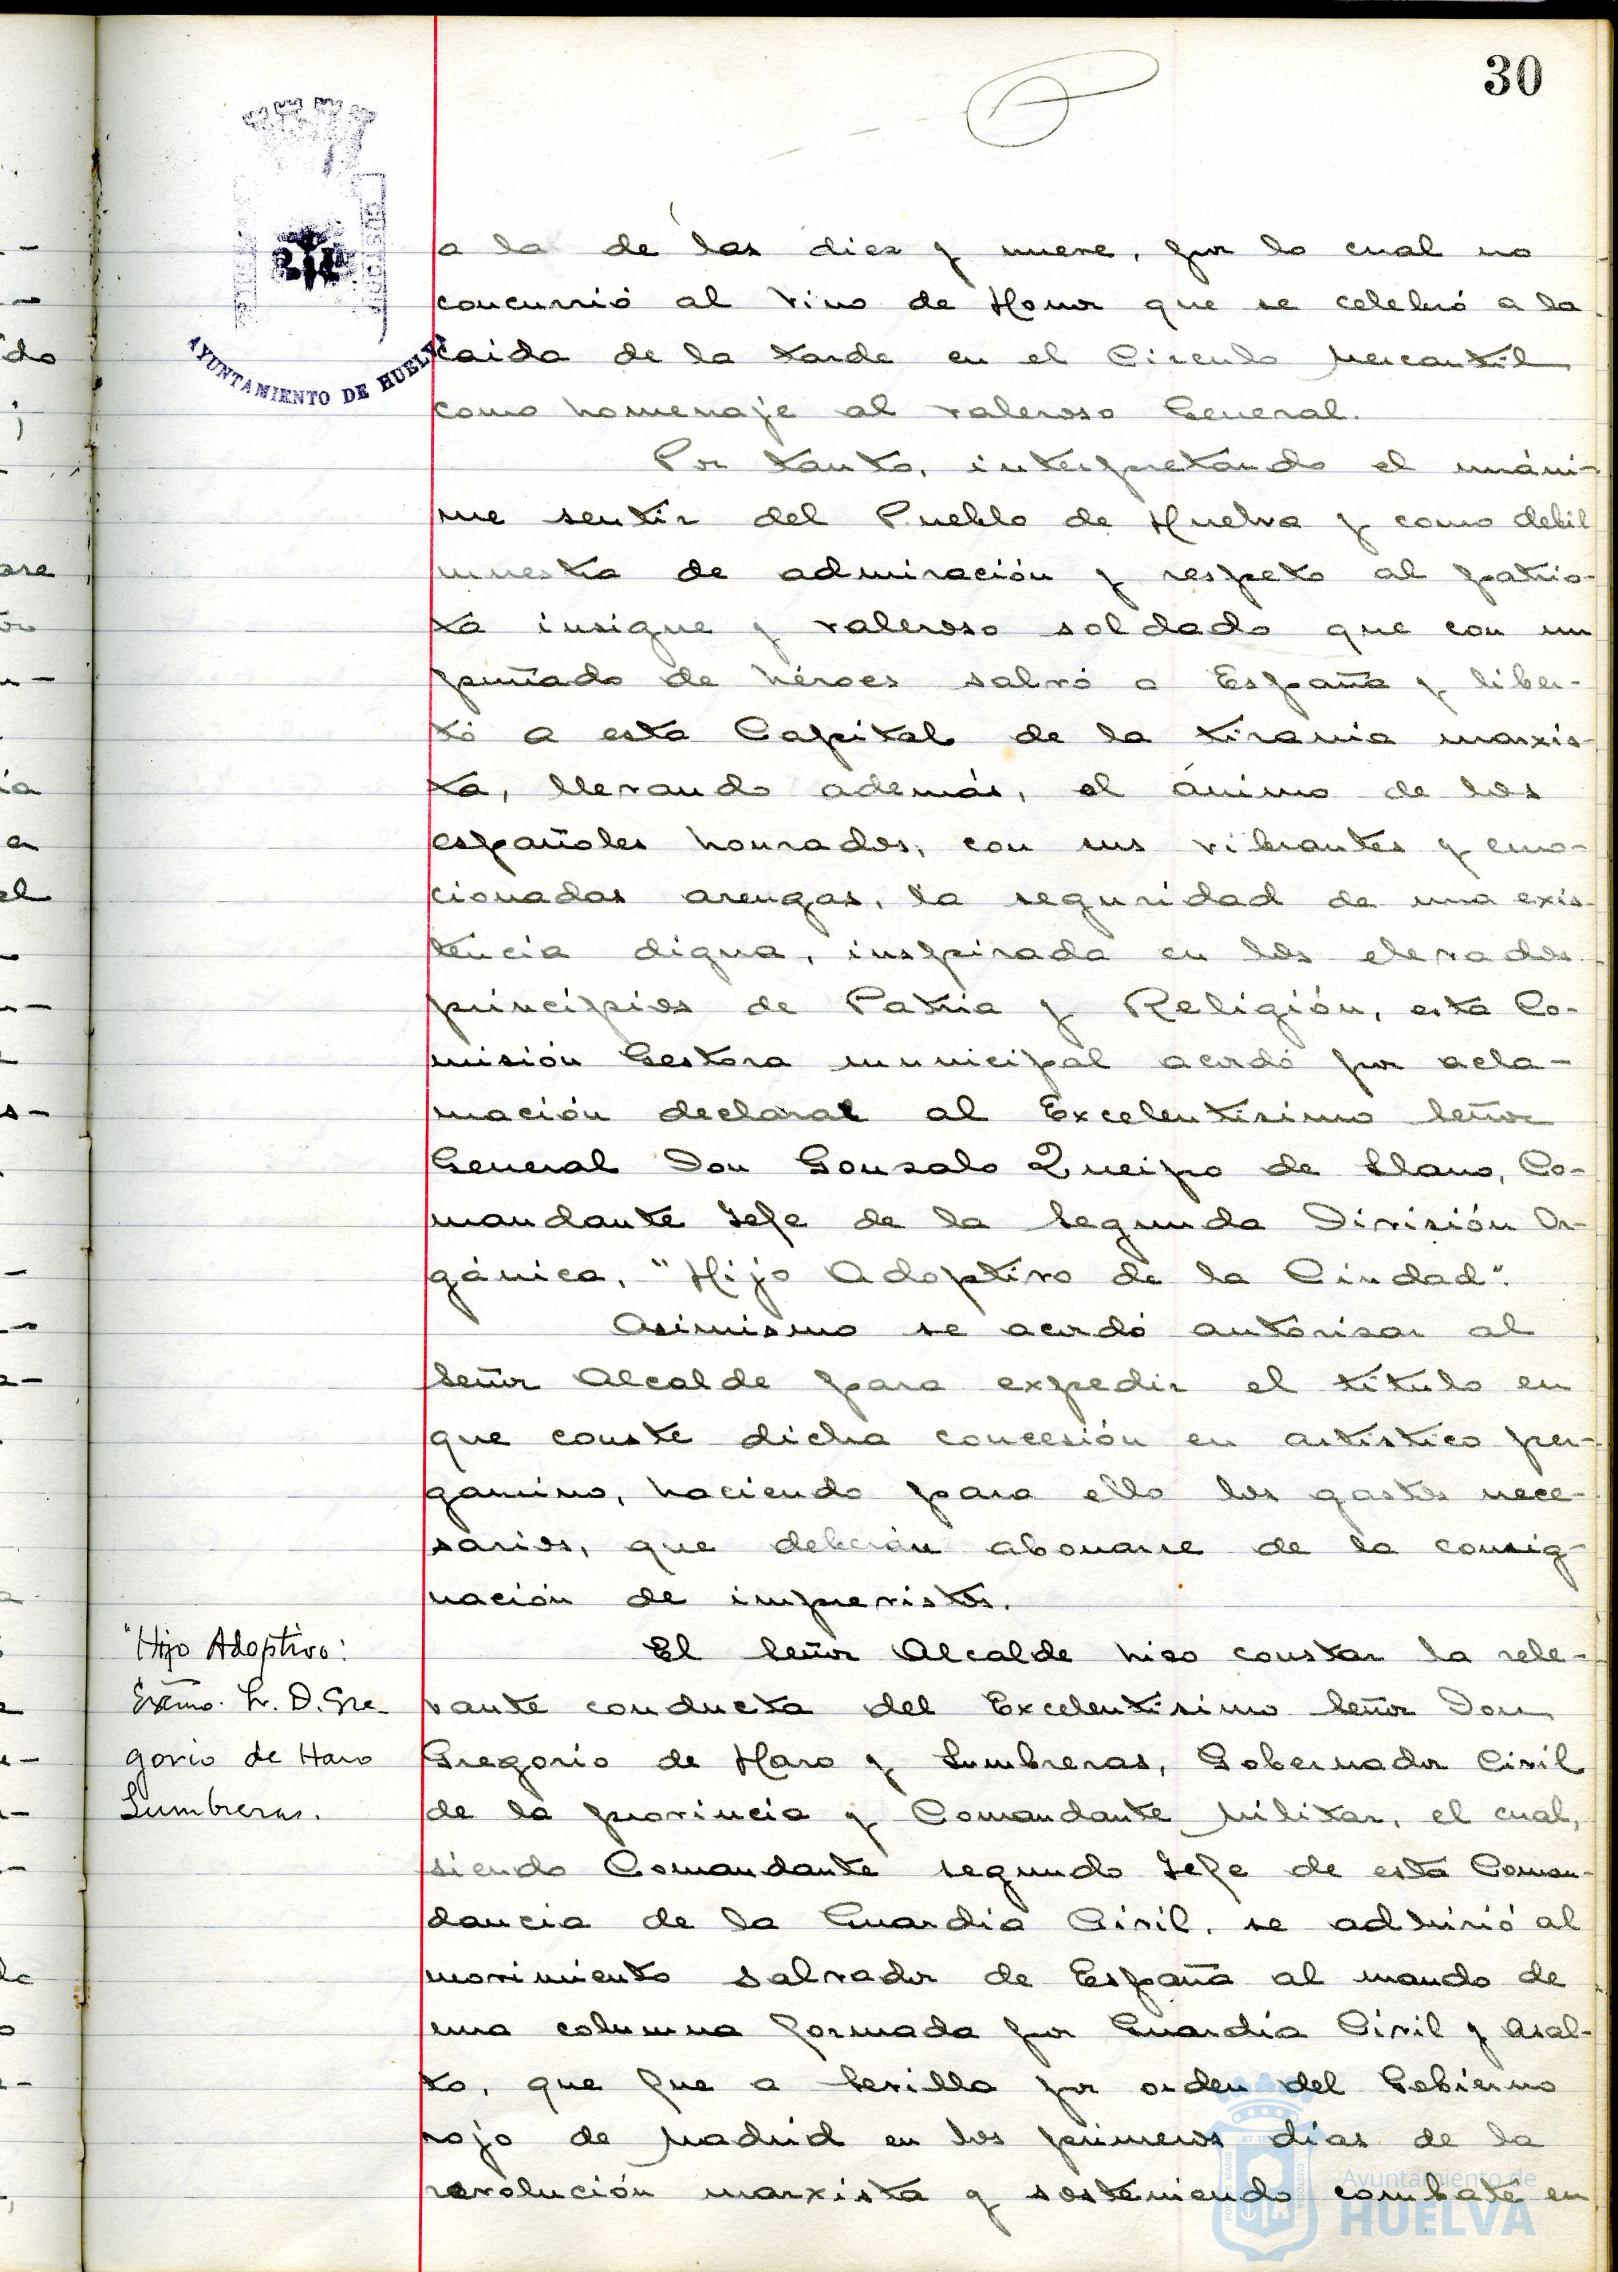 30
AYUNTAMIENTO DE HUELVA
a la de las diez y nueve, por lo cual no
concurrió al Vino de Honor que se celebró a la
caida de la tarde en el Circulo Mercantil
como homenaje al valeroso General.
Por tanto, interpretando el unáni-
me sentir del Pueblo de Huelva y como debil
muestra de admiración y respeto al patrio-
ta insigne y valeroso soldado que con un
puñado de héroes salvó a España y liber-
tó a esta Capital de la tirania marxis-
ta, llevando además, al ánimo de los
españoles honrados, con sus vibrantes y emo-
cionadas arengas, la seguridad de una exis-
tencia digna, inspirada en los elevados
principios de Patria y Religión, esta Co-
misión Gestora municipal acordó por acla-
mación declarar al Excelentisimo Señor
General Don Gonzalo Queipo de Llano, Co-
mandante Jefe de la Segunda División Or-
gánica, "Hijo Adoptivo de la Ciudad".
Asimismo se acordó autorizar al
Señor Alcalde para expedir el título en
que conste dicha concesión en artístico per-
gamino, haciendo para ello los gastos nece-
sarios, que deberán abonarse de la consig-
nación de imprevistos.
"Hijo Adoptivo:
Exmo. Sr. D. Gre-
gorio de Haro
Lumbreras.
El Señor Alcalde hizo constar la rele-
vante conducta del Excelentisimo Señor Don
Gregorio de Haro y Lumbreras, Gobernador Civil
de la provincia y Comandante Militar, el cual,
siendo Comandante segundo Jefe de esta Coman-
dancia de la Guardia Civil, se adhirió al
movimiento salvador de España al mando de
una columna formada por Guardia Civil y Asal-
to, que fue a Sevilla por orden del Gobierno
rojo de Madrid en los primeros dias de la
revolución marxista y sosteniendo combate en
Ayuntamiento de
HUELVA